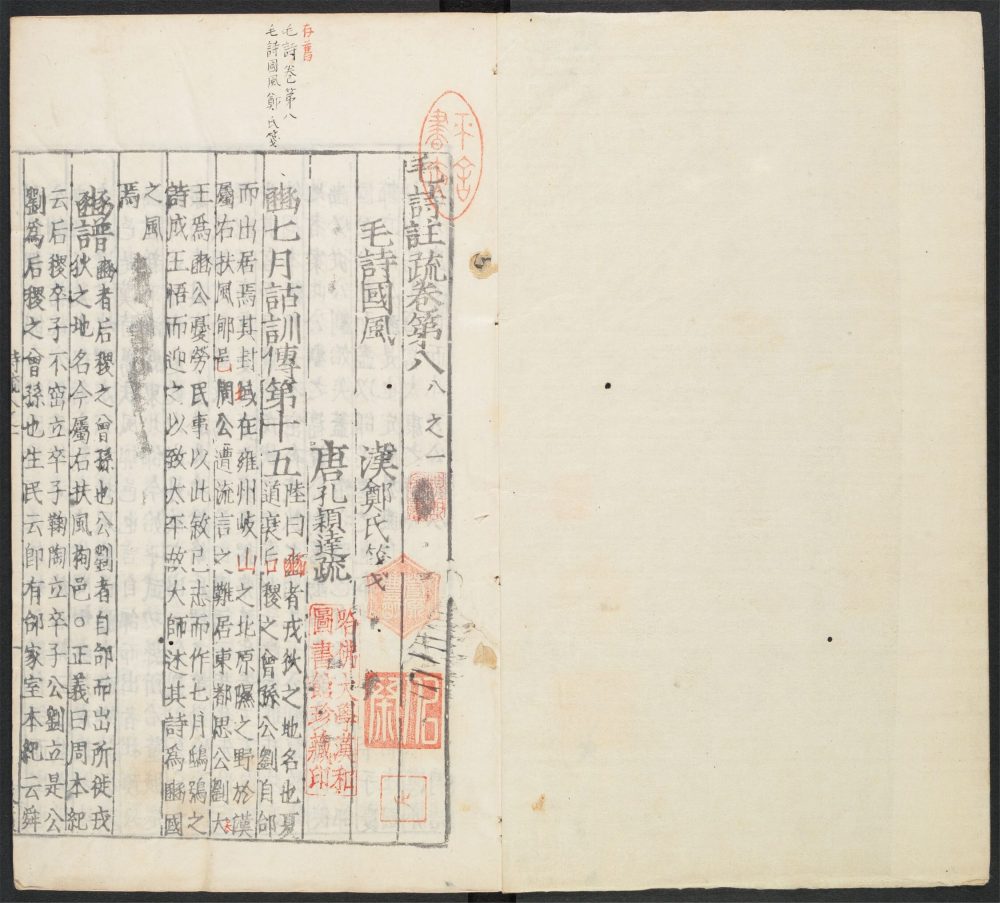 存舊
毛詩卷第八
毛詩國風鄭氏箋
毛詩註疏卷第八 八之一
毛詩國風 漢鄭氏箋
唐孔穎達疏
豳七月詁訓傳第十五 陸曰豳者戎狄之地名也夏
道衰后稷之曾孫公劉自邰
而出居焉其封域在雍州岐山之北原隰之野於漢
屬右扶風郇邑周公遭流言之難居東都思公劉大
王爲豳公憂勞民事以此敘己志而作七月鴟鴞之
詩成王悟而迎之以致大平故大師沐其詩爲豳國
之風
焉
豳譜 豳者后稷之曾孫也公劉者自邰而出所徙戎
狄之地名今屬右扶風栒邑○正義曰周本紀
云后稷卒子不窋立卒子鞠陶立卒子公劉立是公
劉爲后稷之曾孫也生民云卽有邰家室本紀云舜
哈佛大學漢和
圖書館珍藏印